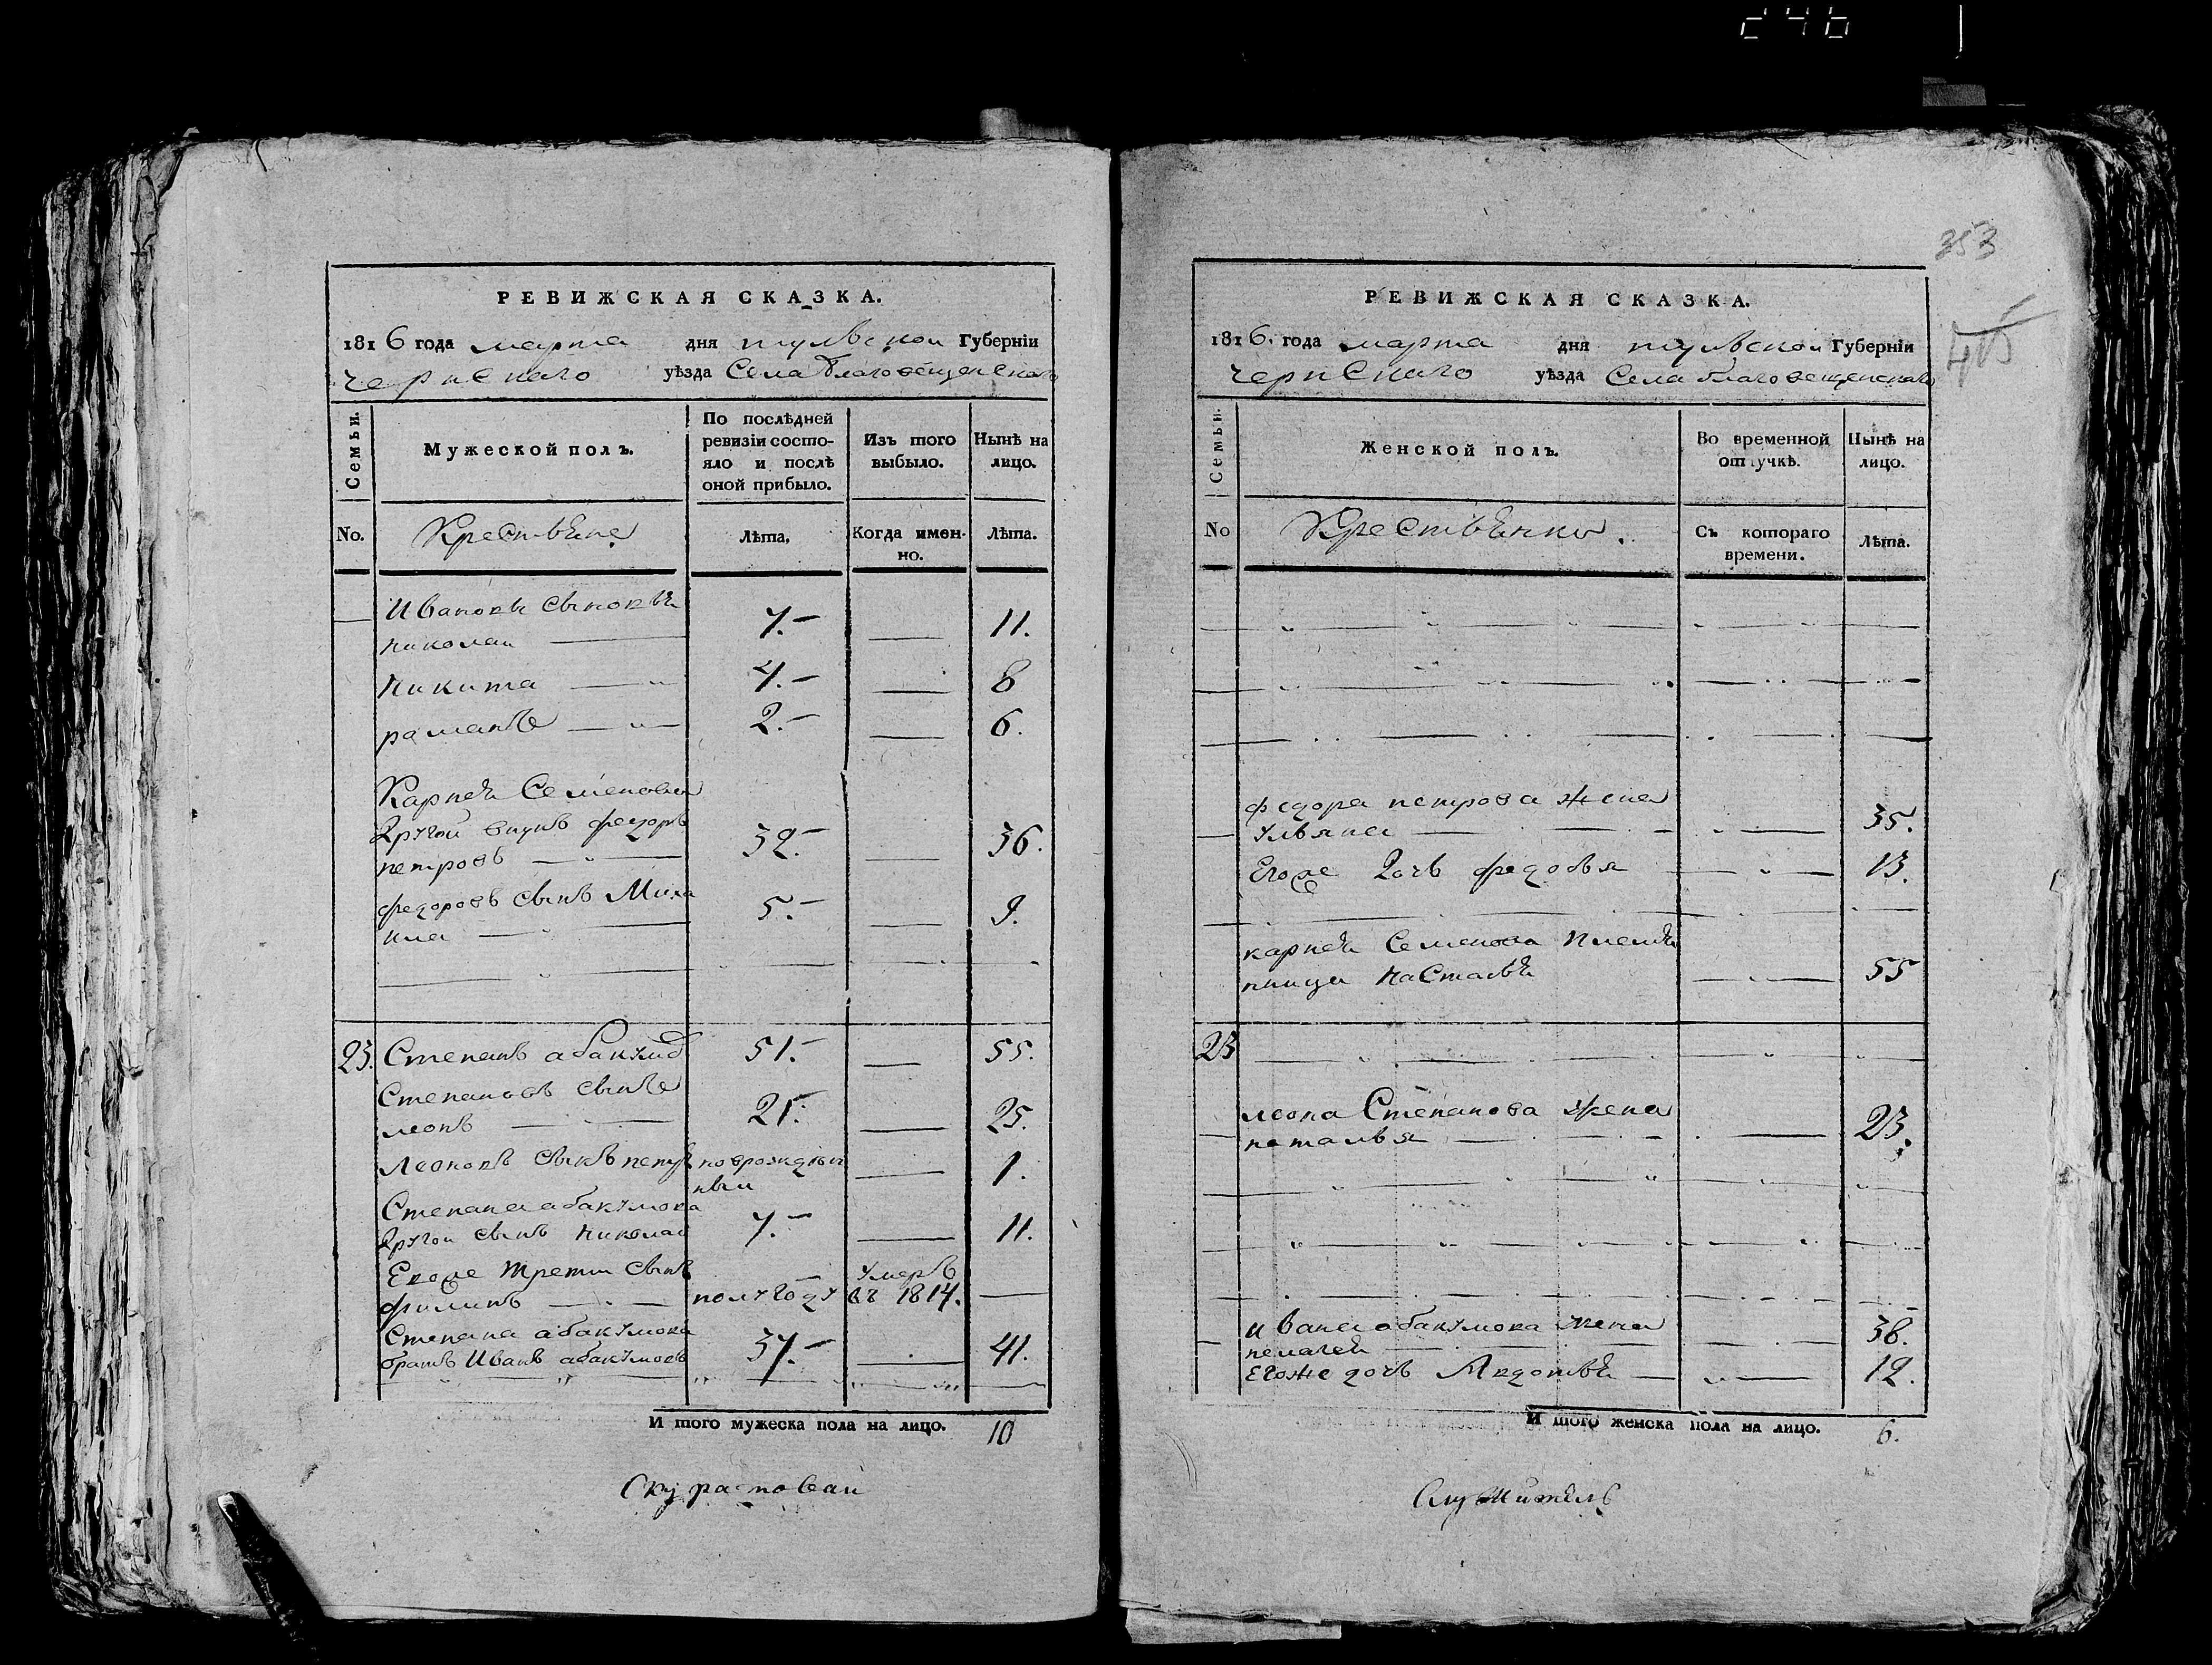 353
РЕВИЖСКАЯ СКАЗКА.
1816 года марта дня тульской Губерніи
чернскаго уѣзда Села благовещенскаго
Семьи.
Мужеской полъ.
По послѣдней ревизіи состо-
яло и послѣ
оной прибыло.
Изъ того выбыло.
Нынѣ на лицо.
No.
Крестьяне
Лѣта.
Когда имен-
но.
Лѣта.
Ивановы сыновья
николаи 7. 11.
никита 4. 8
раманъ 2. 6.
Карнея Семенова
другой внукъ федоръ
петровъ 32. 36.
федоровъ сынъ Миха
ила 5. 9.
23. Степанъ абакумов 51. 55.
Степановъ сынъ
леонъ 21. 25.
Леоновъ сынъ петръ новрожден
ныи 1.
Степана абакумова
другои сынъ николаи 7. 11.
Ево же трети сынъ
филипъ полугоду умеръ
въ 1814.
Степана абакумова
братъ Иванъ абакумовъ 37. 41.
И того мужеска пола на лицо. 10
Скуратоваи
РЕВИЖСКАЯ СКАЗКА.
1816. года марта дня тульской Губерніи
чернскаго уѣзда Села благовещенскаго
Семьи.
Женской полъ.
Во временной
отлучкѣ.
Нынѣ на
лицо.
No
Крестьянки.
Съ котораго
времени.
Лѣта.
федора петрова жена
ульяна 35.
Егоже дочь федосья 13.
карнея Семенова племя
ница настасья 55
23
леона Степанова жена
наталья 23.
ивана абакумова жена
пелагея 38.
Егоже дочь Авдотья 12.
И того женска пола на лицо. 6.
Служитель